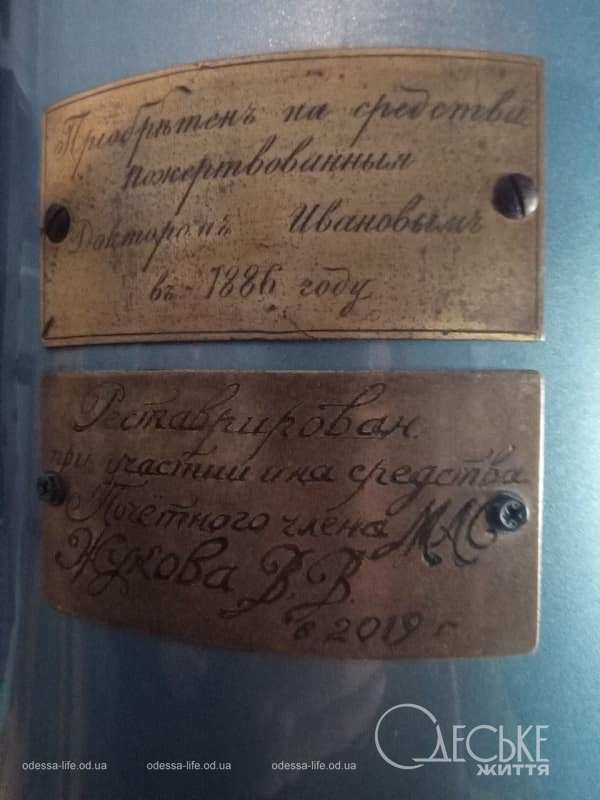 Пріобрѣтенъ на средства
пожертвованныя
Докторомъ Ивановымъ
въ 1886 году
Реставрирован
при участии и на средства
Почётного члена МАС
Жукова В.В.
в 2019 г
Одеське
життя
odessa-life.od.ua odessa-life.od.ua odessa-life.od.ua